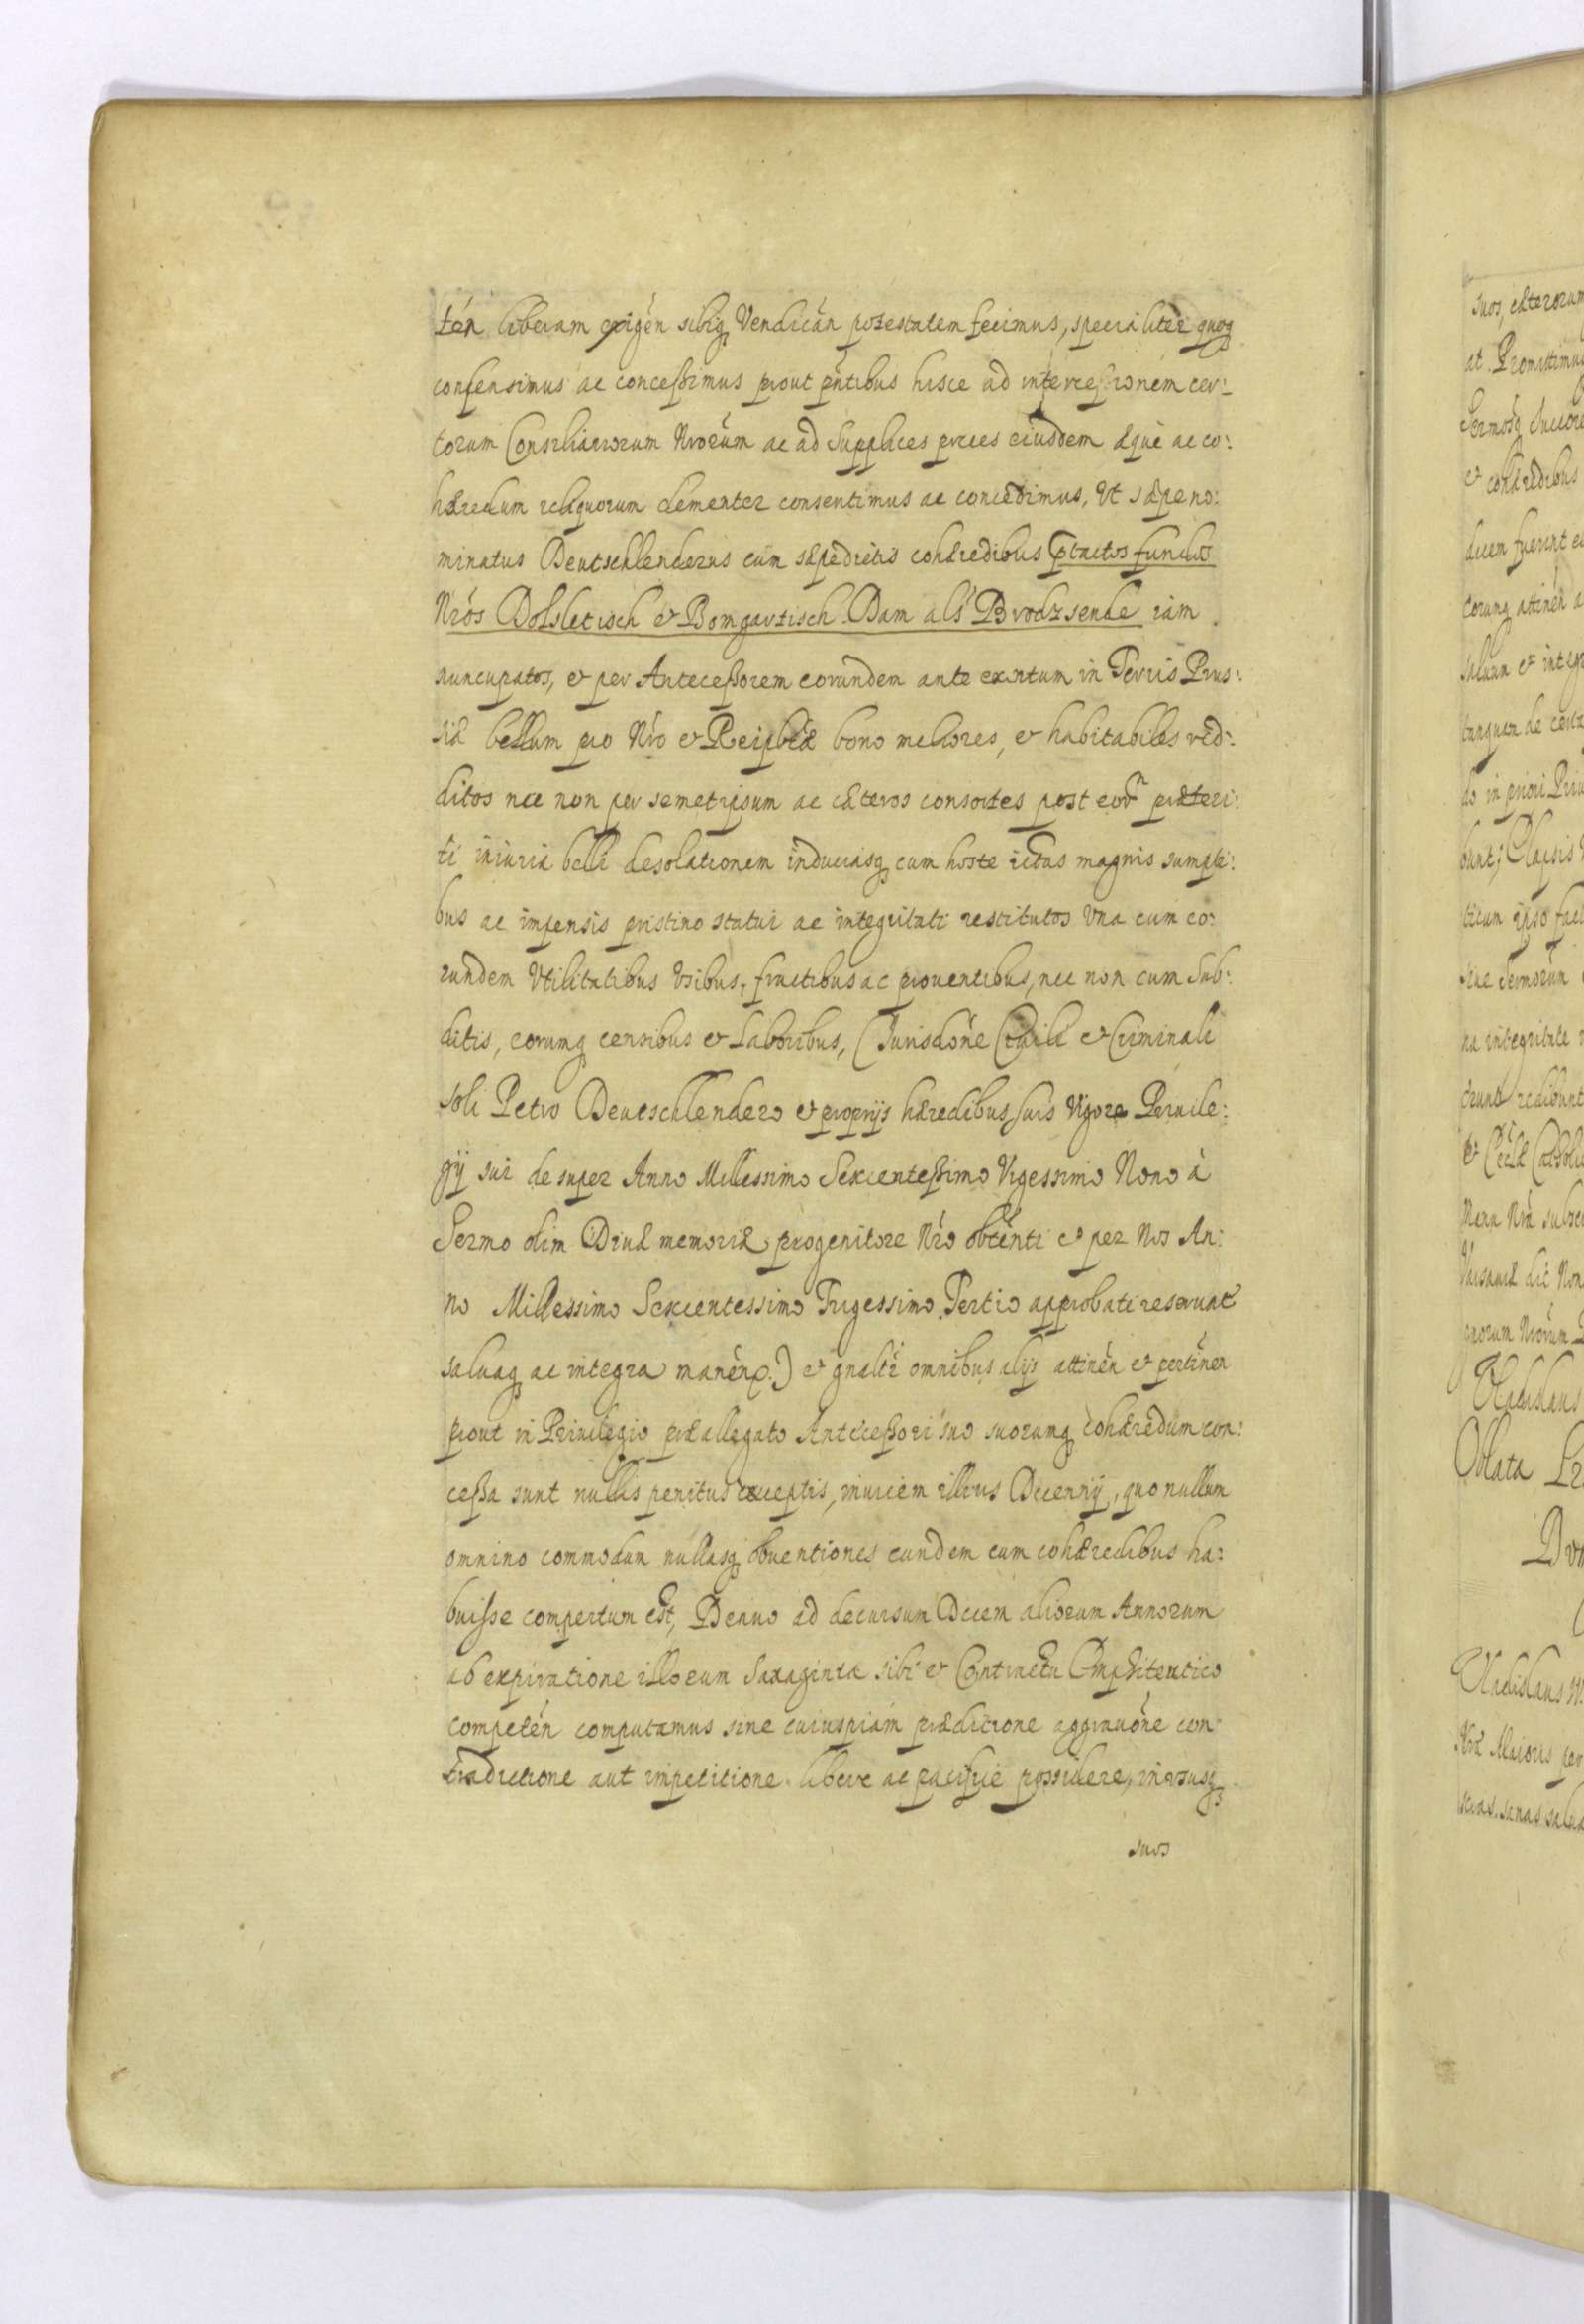 tén liberam exigén sibiq Vendicán potestatem fecimus, specialiter quoq
consensimus ac concessimus prout pntibus hisce ad intercessionem cer:
torum Consiliariorum Nrorum ac ad Supplices preces eiusdem æquè ac co:
hæredum reliquorum clementer consentimus ac concedimus, Vt sæpe no:
minatus Deutschlenderus cum sæpedictis cohæredibus ptactos fundos
Nrós Dofsletisch et Bomgartisch Dam als Brodzsende iam
nuncupatos, et per Antecessorem eorundem ante exortum in Terris Prus:
siæ bellum pro Nro et Reipbcæ bono meliores, et habitabiles red:
ditos nec non per semetipsum ac cæteros consortes post eorn præteri:
ti iniuria belli desolationem induciasq cum hoste ictas magnis sumpti:
bus ac impensis pristino statui ac integritati restitutos Vna cum eo:
rundem Vtilitatibus Vsibus, fructibus ac prouentibus, nec non cum Sub:
ditis, eorumq censibus et Laboribus, (Jurisdóne Ciuili et Criminali
soli Petro Deutschlendero et proprijs hæredibus suis Vigore Priuile:
gij sui desuper Anno Millessimo Sexcentessimo Vigessimo Nono à
Sermo olim Diuæ memoriæ progenitore Nro obtenti et per Nos An:
no Millessimo Sexcentessimo Trigessimo Tertio approbati reseruat
saluaq ac integra manén.) et gnalté omnibus alijs attinén et pertinen
prout in Priuilegio præallegato Antecessori suo suorumq cohæredum con:
cessa sunt nullis penitus exceptis, inuicem illius Decennij, quo nullum
omnino commodum nullasq obuentiones eundem cum cohæredibus ha:
buisse compertum est, Denuo ad decursum Decem aliorum Annorum
ab expiratione illorum Saxaginta sibi et Contractu Emphiteutico
competén computamus sine cuiuspiam prædictione aggrauóne con
tradictione aut impetitione libere ac pacifice possidere, in vsusq
suos
suos, cæterorum
at. Promittimus
et cohæredibus
decem fuerint
eorumq attinén
saluum et integr
tanquam de cert
do in priori Priu
bunt; Elapsis
ticum ipso fac
na integritate
Manu Nra subsc
Varsauiæ die Non
gnorum Nrorum
Vladislaus
Oblata
Vladislaus
Nræ Maioris per